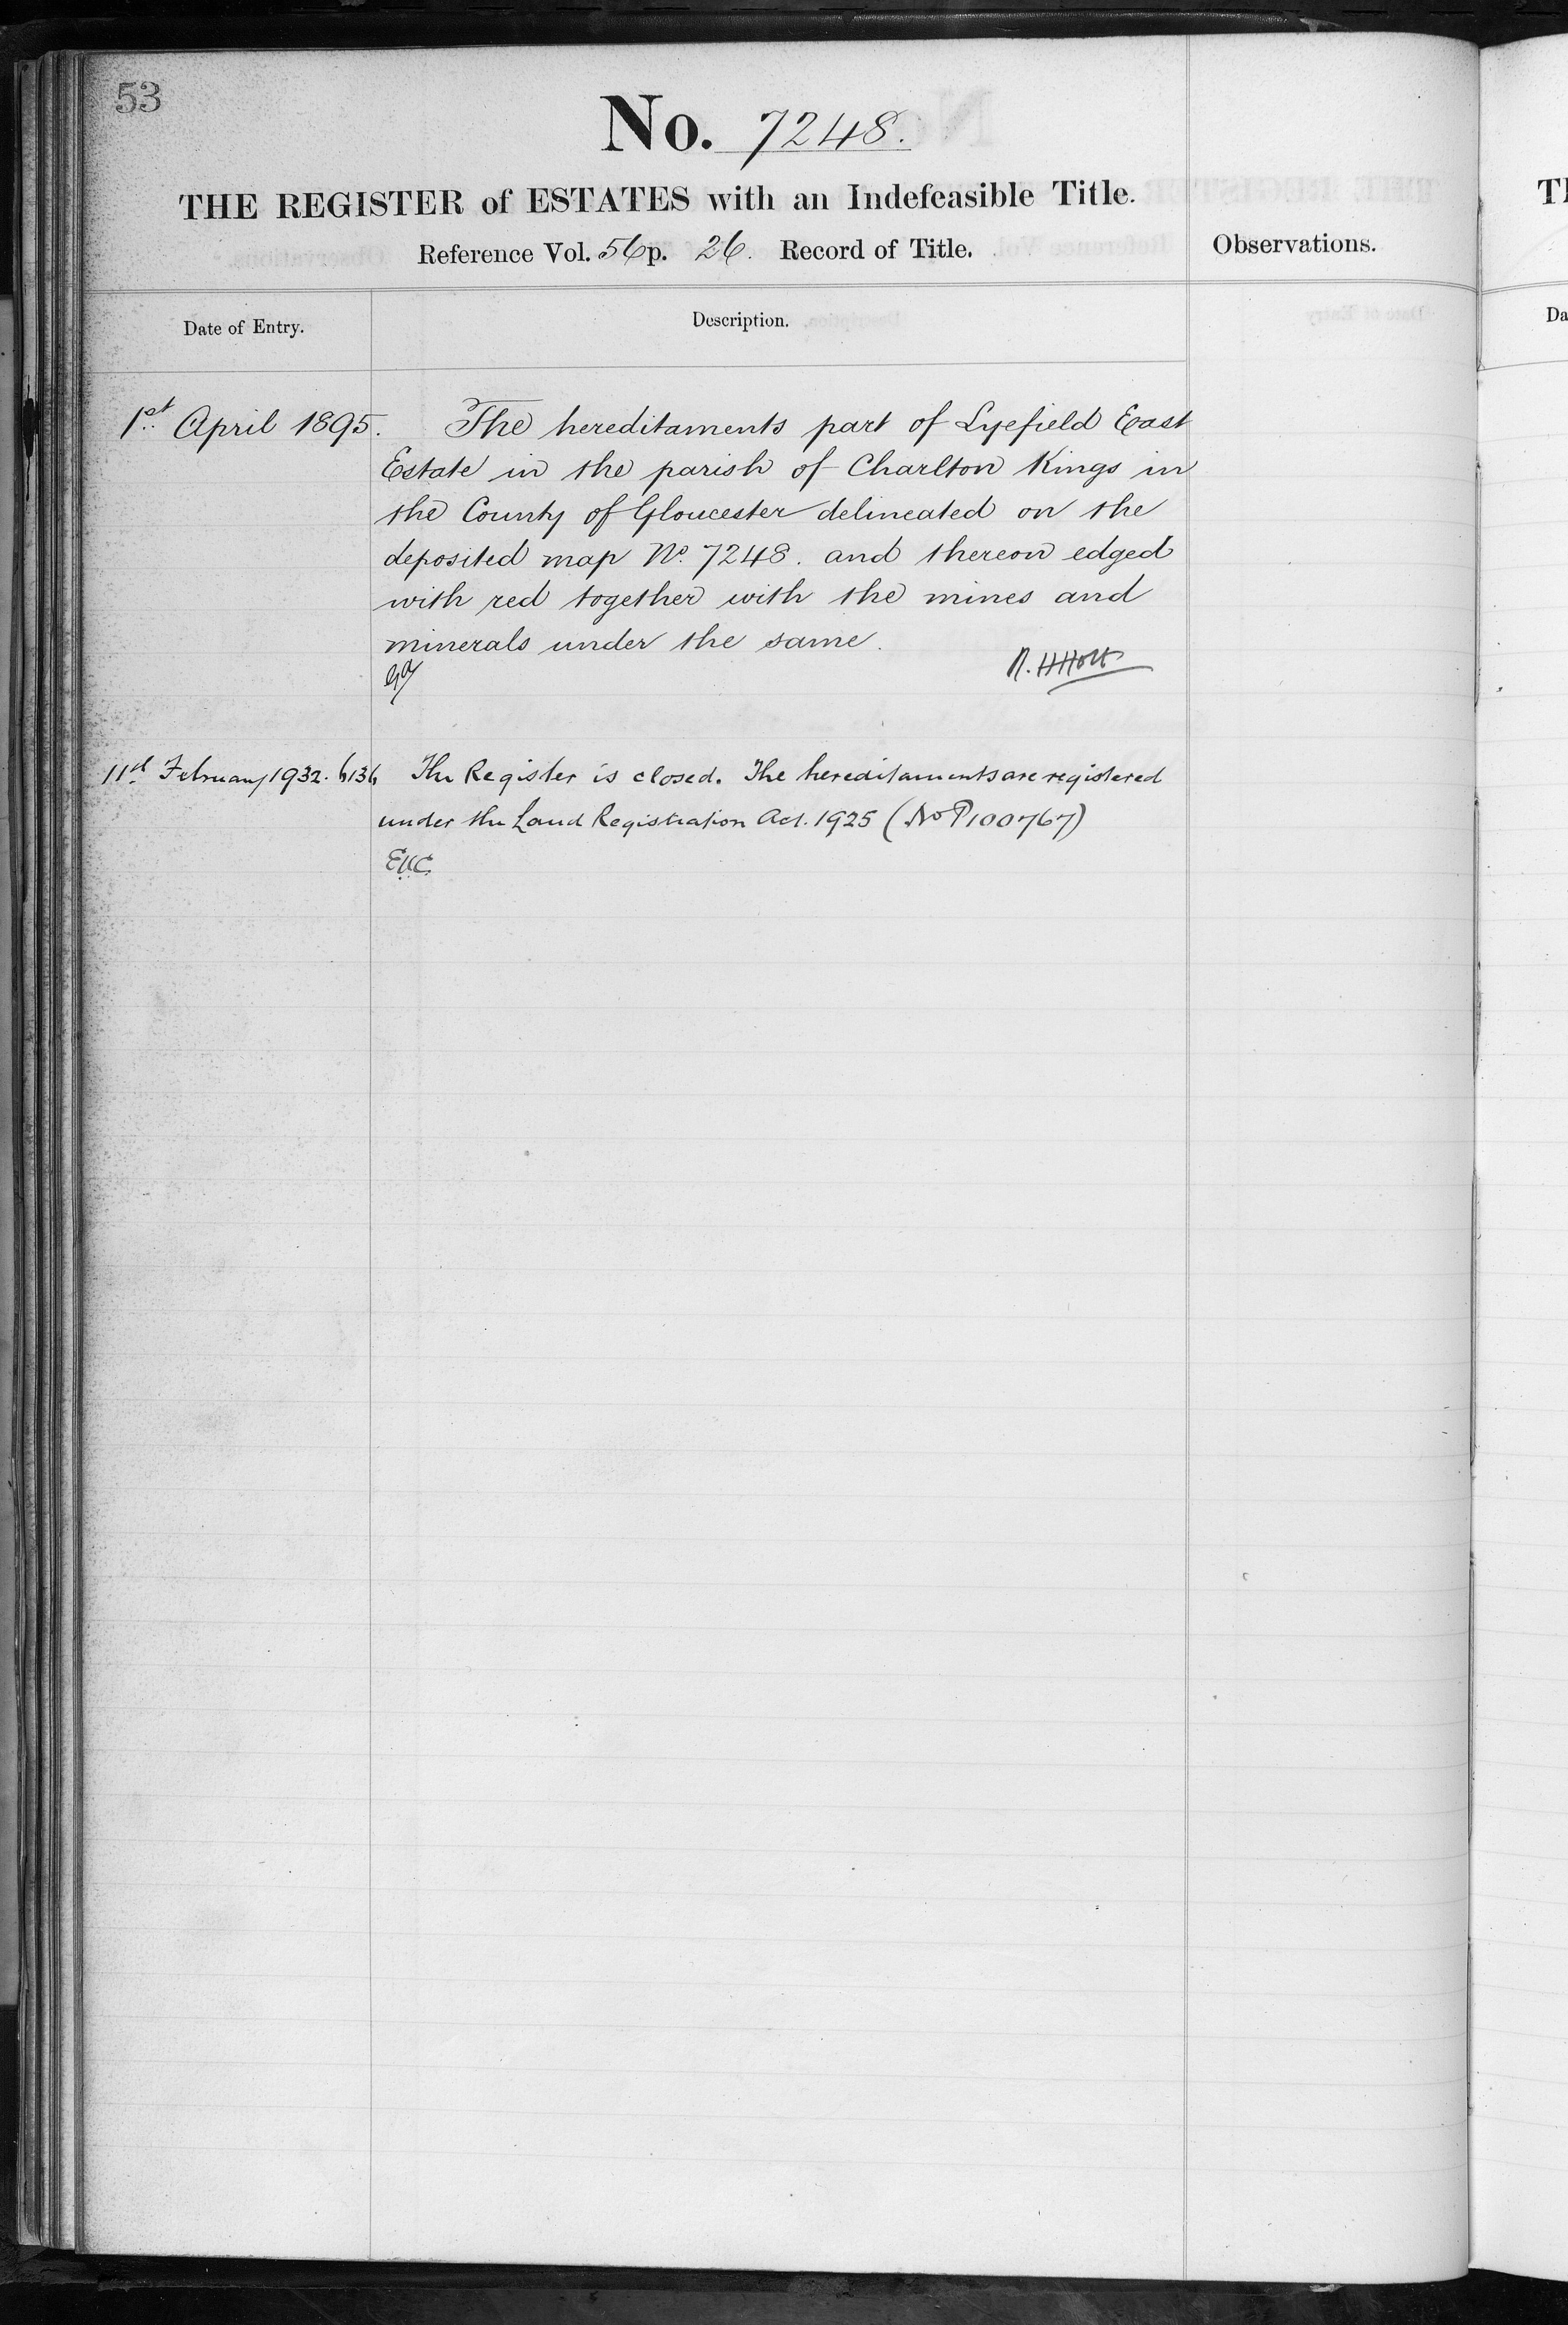 53
No. 7248.
THE REGISTER of ESTATES with an Indefeasible Title.
Reference Vol. 56 p. 26. Record of Title.
Observations.
Date of Entry.
Description.
1st April 1895. The hereditaments part of Lyefield East
Estate in the parish of Charlton Kings in
the County of Gloucester delineated on the
deposited map No. 7248. and thereon edged
with red together with the mines and
minerals under the same.
R. H Holt
11th February 1932. The Register is closed. The hereditaments are registered
under the Land Registration Act. 1925 (No P100767)
Th
Da